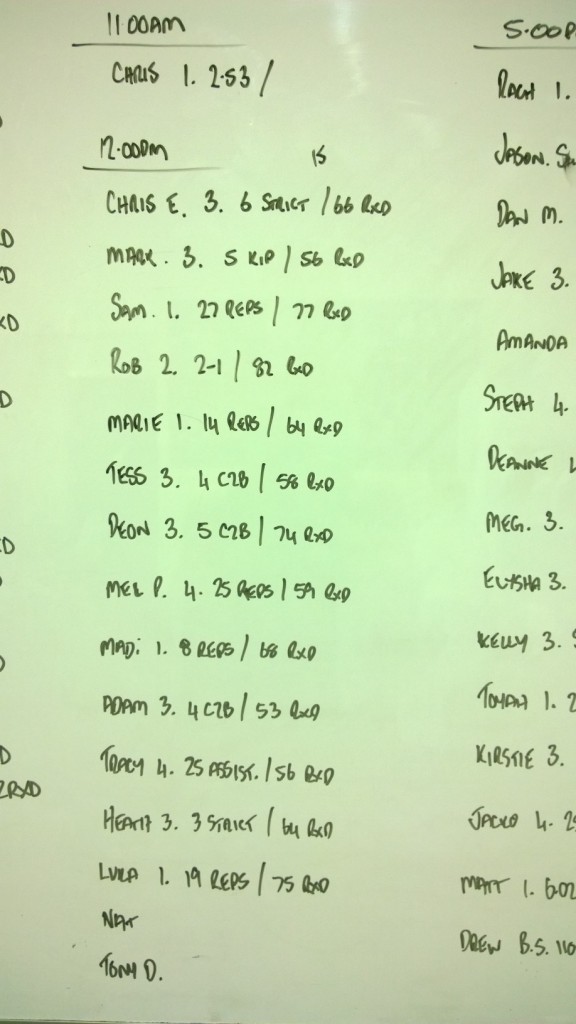 11:00AM
CHRIS 1. 2.53 /
12:00PM
15
CHRIS E. 3. 6 STRICT / 66 RXD
MARK. 3. 5 KIP / 56 RXD
SAM. 1. 27 REPS / 77 RXD
ROB 2. 2-1 / 82 RXD
MARIE 1. 14 REPS / 64 RXD
TESS 3. 4 C2B / 58 RXD
DEON 3. 5 C2B / 74 RXD
MEL P. 4. 25 REPS / 59 RXD
MADi 1. 8 REPS / 68 RXD
ADAM 3. 4 C2B / 53 RXD
TRACY 4. 25 ASSIST. / 56 RXD
HEATH 3. 3 STRICT / 64 RXD
LUKA 1. 19 REPS / 75 RXD
NAT
TONY D.
5:00P
RACH 1.
JASON.
DAN M.
JAKE 3.
AMANDA
STEPH 4.
DEANNE
MEG. 3.
ELYSHA 3.
KELLY 3.
1. 2
KIRSTIE 3.
JACKO 4. 25
MATT 1. 6.02
DREW B.S. 110
D
D
XD
D
D
D
2RXD